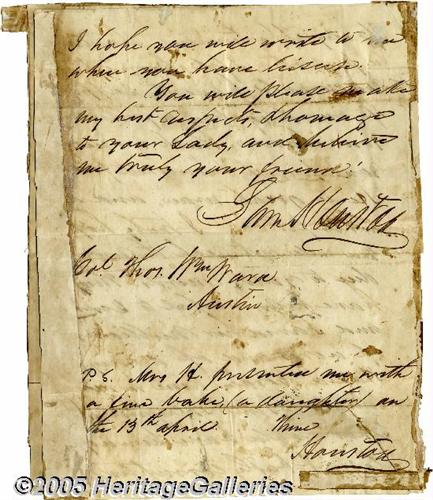 I hope you will write to me
when you have leisure.
You will please make
my best respects, & homage
to your Lady, and believe
me truly your friend.
Sam Houston
Col. Thos. Wm Ward
Austin
P.S. Mrs H. presented me with
a fine babe, (a daughter) on
the 13th april. Thine
Houston
©2005 HeritageGalleries